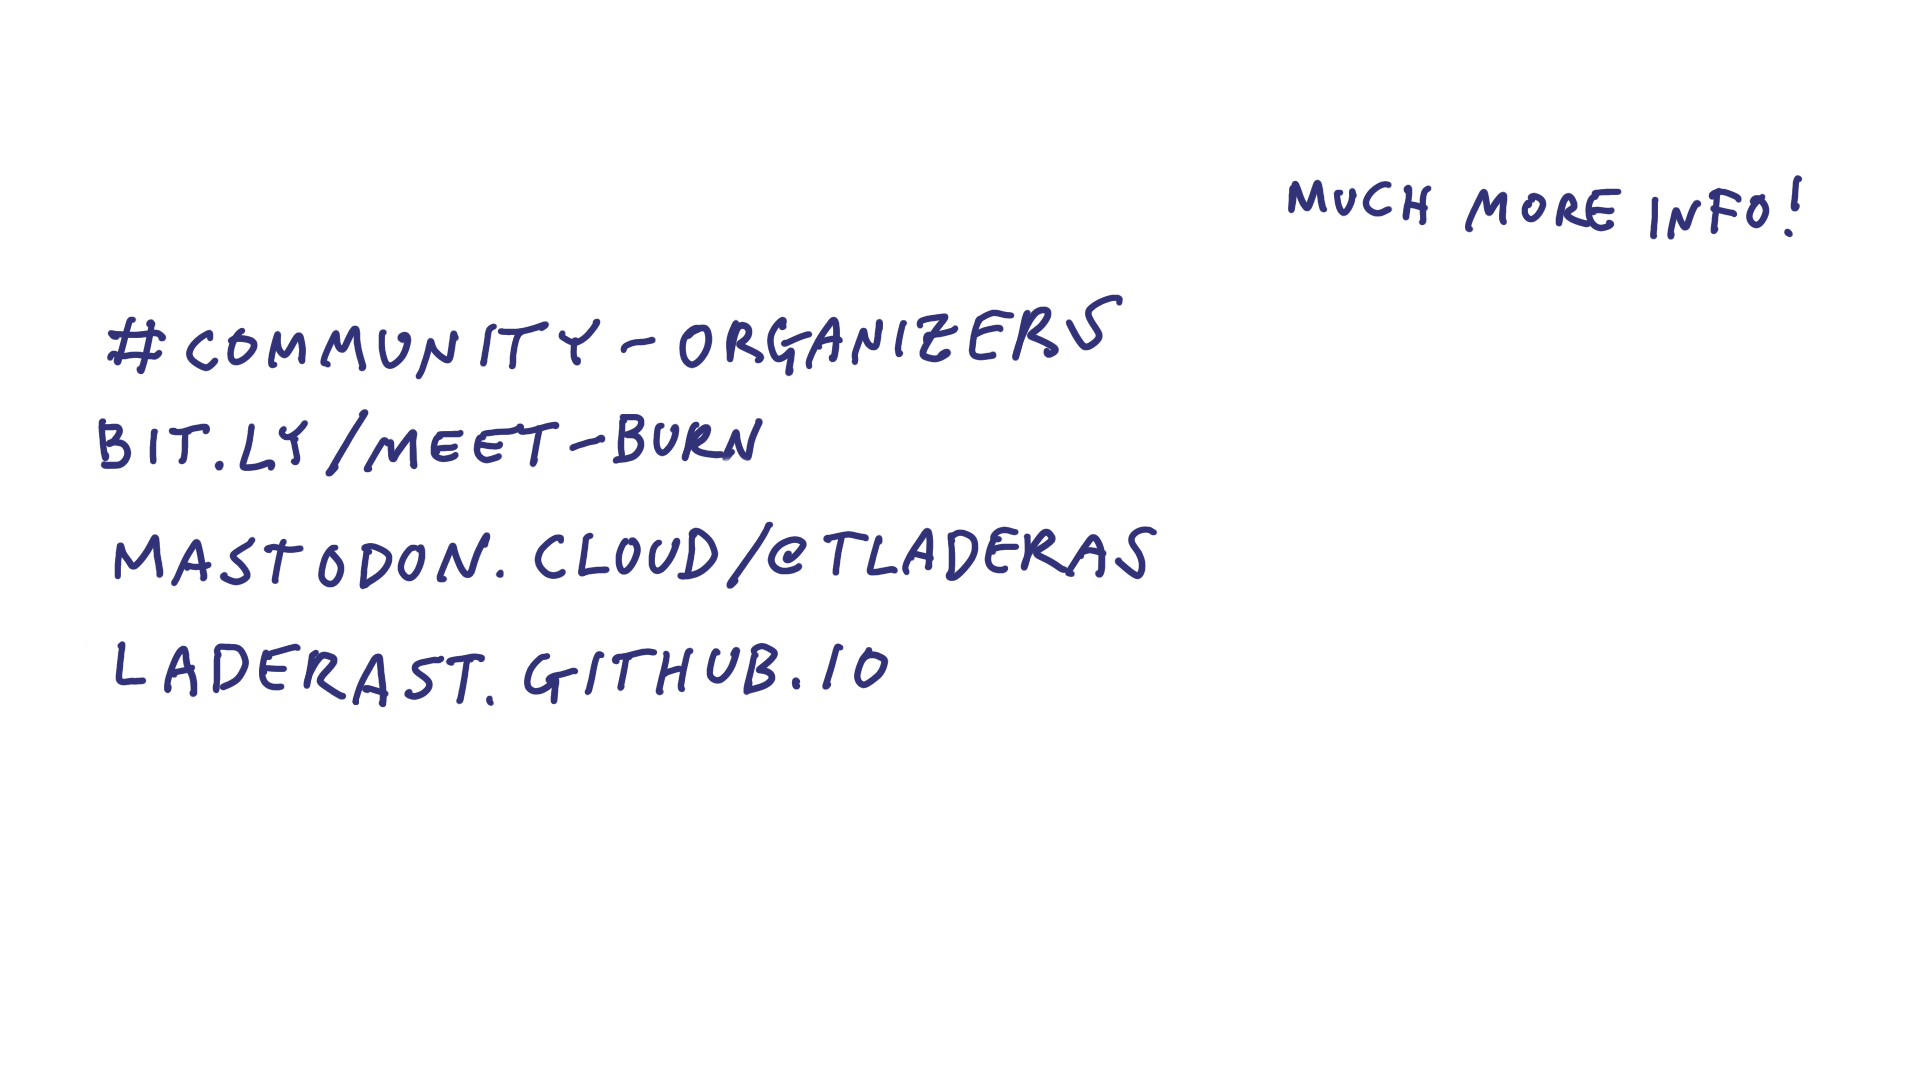 MUCH MORE INFO!
#COMMUNITY-ORGANIZERS
BIT.LY/MEET-BURN
MASTODON.CLOUD/@TLADERAS
LADERAST.GITHUB.IO